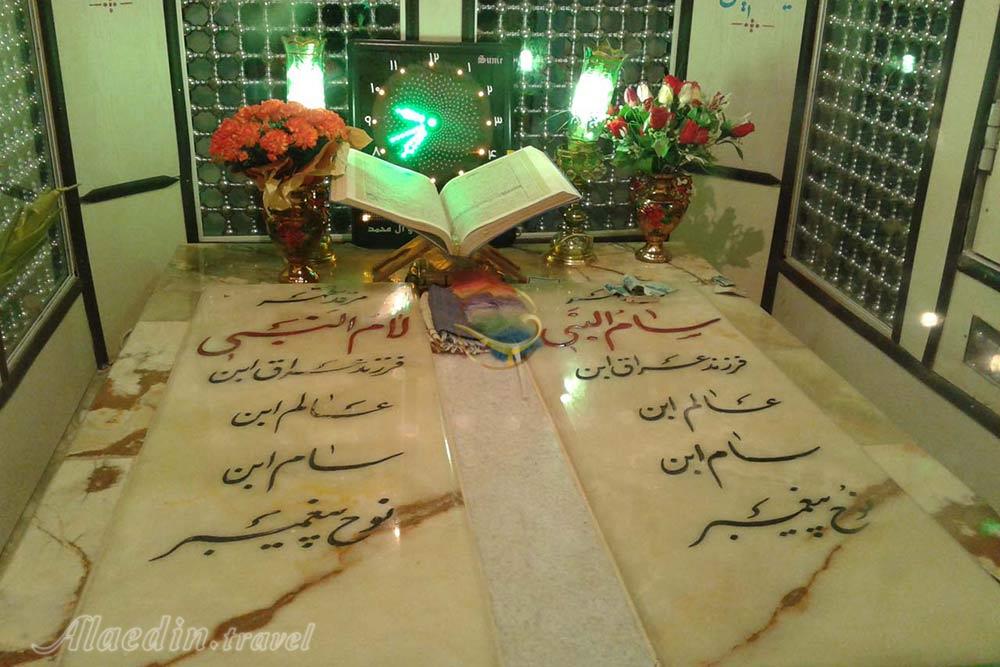 مرقد مطهر
سام النبی
فرزند عراق ابن
عالم ابن
سام ابن
نوح پیغمبر
مرقد مطهر
لام النبی
فرزند عراق ابن
عالم ابن
سام ابن
نوح پیغمبر
١٢
١
١١
٢
١٠
٣
٩
٤
٨
و آل محمد
Alaedin.travel